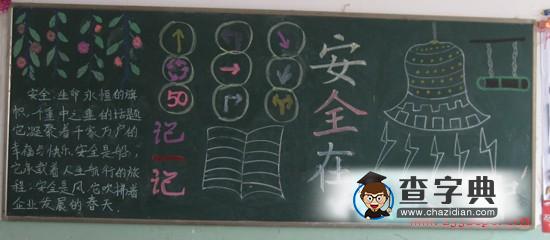 安全:生命永恒的旗
帜,千重中之重的话题
它凝聚着千家万户的
幸福与快乐.安全是船,
它承载着人生航行的旅
程;安全是风它吹拂着
企业发展的春天.
50
记一记
安全在
查字典
www.chazidian.com